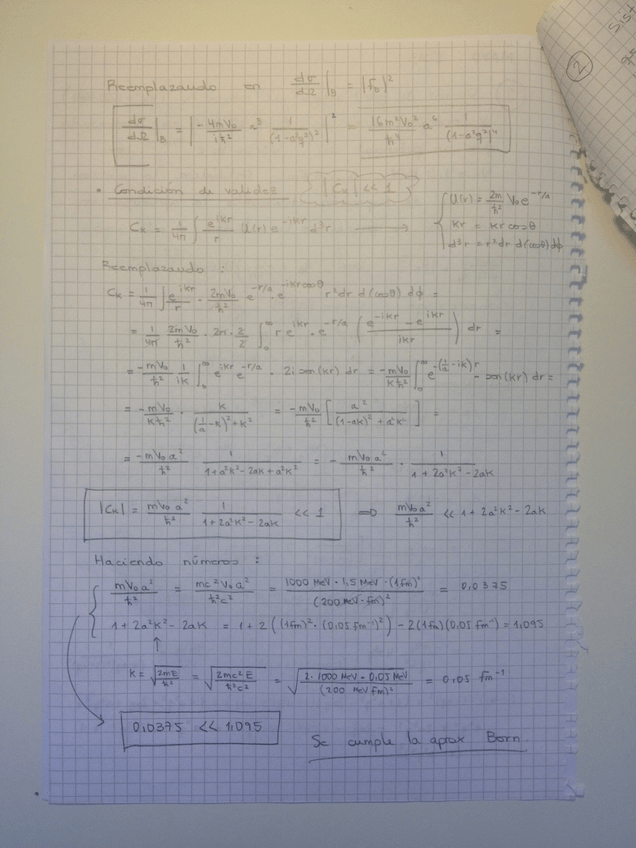 Reemplazando en dσ/dΩ|_B = |f_B|²
dσ/dΩ|_B = |-4mV₀/iħ² a³ 1/(1-a²q²)²|² = 16m²V₀²/ħ⁴ a⁶ 1/(1-a²q²)⁴
• Condición de validez |C_K| << 1
C_K = 1/4π ∫ e^{ikr}/r U(r) e^{-ikr} d³r ⟶ { U(r) = 2m/ħ² V₀ e^{-r/a}
kr = kr cosθ
d³r = r² dr d(cosθ) dϕ
Reemplazando :
C_K = 1/4π ∫ e^{ikr}/r · 2mV₀/ħ² e^{-r/a} · e^{-ikr cosθ} r² dr d(cosθ) dϕ =
= 1/4π 2mV₀/ħ² · 2π · 2/2 ∫₀^∞ r e^{ikr} · e^{-r/a} (e^{-ikr} - e^{ikr}/ikr) dr =
= -mV₀/ħ² 1/ik ∫₀^∞ e^{ikr} e^{-r/a} · 2i sen(kr) dr = -mV₀/kħ² ∫₀^∞ e^{-(1/a - ik)r} · sen(kr) dr =
= -mV₀/kħ² · k/(1/a - k)² + k² = -mV₀/ħ² [a²/(1-ak)² + a²k²] =
= -mV₀a²/ħ² 1/1+a²k²-2ak+a²k² = -mV₀a²/ħ² · 1/1+2a²k²-2ak
|C_K| = mV₀a²/ħ² 1/1+2a²k²-2ak << 1 ⇒ mV₀a²/ħ² << 1+2a²k²-2ak
Haciendo números :
mV₀a²/ħ² = mc²V₀a²/ħ²c² = 1000 MeV · 1,5 MeV · (1fm)²/(200 MeV · fm)² = 0,0375
1+2a²k²-2ak = 1+2((1fm)² · (0,05 fm⁻¹)²) - 2(1fm)(0,05 fm⁻¹) = 1,095
↑
K = √2mE/ħ² = √2mc²E/ħ²c² = √2 · 1000 MeV · 0,05 MeV/(200 MeV fm)² = 0,05 fm⁻¹
0,0375 << 1,095
Se cumple la aprox Born
2